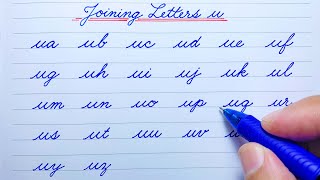 Joining Letters u
ua ub uc ud ue uf
ug uh ui uj uk ul
um un uo up uq ur
us ut uu uv
uy uz